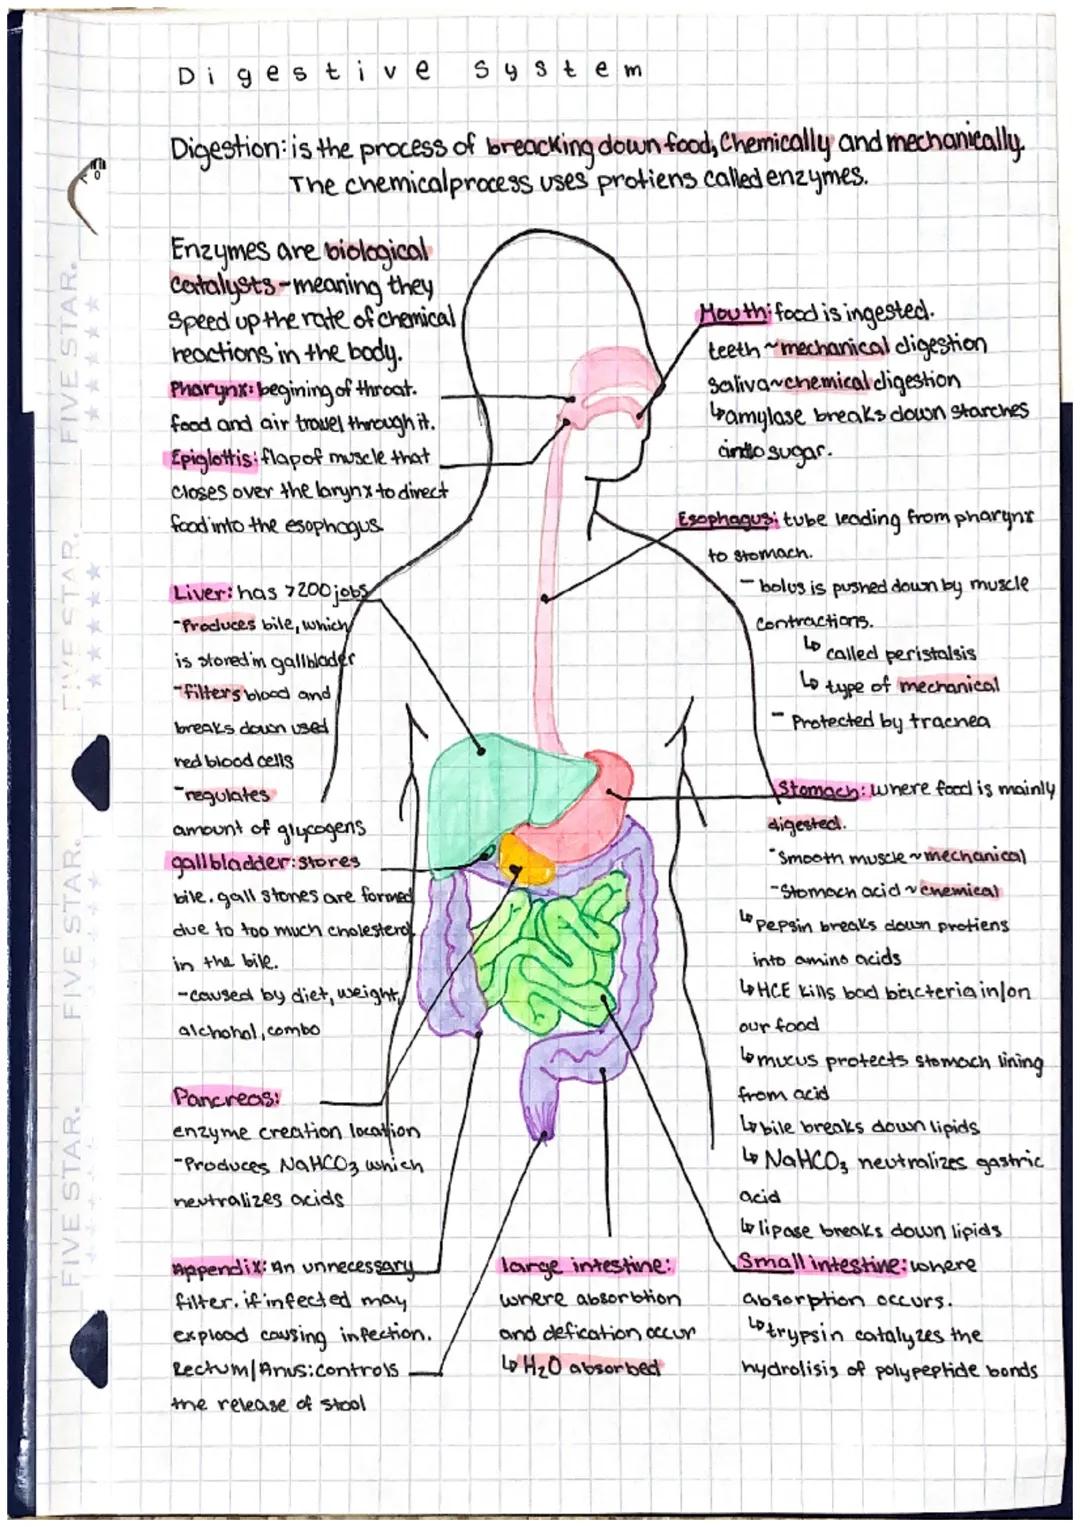 Digestive System
Digestion: is the process of breacking down food, Chemically and mechanically.
The chemical process uses protiens called enzymes.
Enzymes are biological
catalysts - meaning they
speed up the rate of chemical
reactions in the body.
Pharynx: begining of throat.
food and air travel through it.
Epiglottis: flap of muscle that
closes over the larynx to direct
food into the esophagus
Liver: has >200 jobs
- Produces bile, which
is stored in gallbladder
- filters blood and
breaks down used
red blood cells
- regulates
amount of glycogens
gallbladder: stores
bile. gall stones are formed
due to too much cholesterol
in the bile.
- caused by diet, weight,
alchohol, combo
Pancreas:
enzyme creation location
- Produces NaHCO3 which
neutralizes acids
Appendix: An unnecessary
filter. if infected may
explood causing infection.
Rectum/Anus: controls
the release of stool
Mouth: food is ingested.
teeth ~ mechanical digestion
saliva ~ chemical digestion
↳ amylase breaks down starches
into sugar.
Esophagus: tube leading from pharynx
to stomach.
- bolus is pushed down by muscle
contractions.
↳ called peristalsis
↳ type of mechanical
- Protected by tracnea
Stomach: where food is mainly
digested.
- Smooth muscle ~ mechanical
- Stomach acid ~ chemical
↳ Pepsin breaks down protiens
into amino acids
↳ HCE kills bad bacteria in/on
our food
↳ mucus protects stomach lining
from acid
↳ bile breaks down lipids
↳ NaHCO3 neutralizes gastric
acid
↳ lipase breaks down lipids
large intestine:
where absorbtion
and defication occur
↳ H2O absorbed
Small intestine: where
absorption occurs.
↳ trypsin catalyzes the
hydrolisis of polypeptide bonds
FIVE STAR.
FIVE STAR.
FIVE STAR.
FIVE STAR.